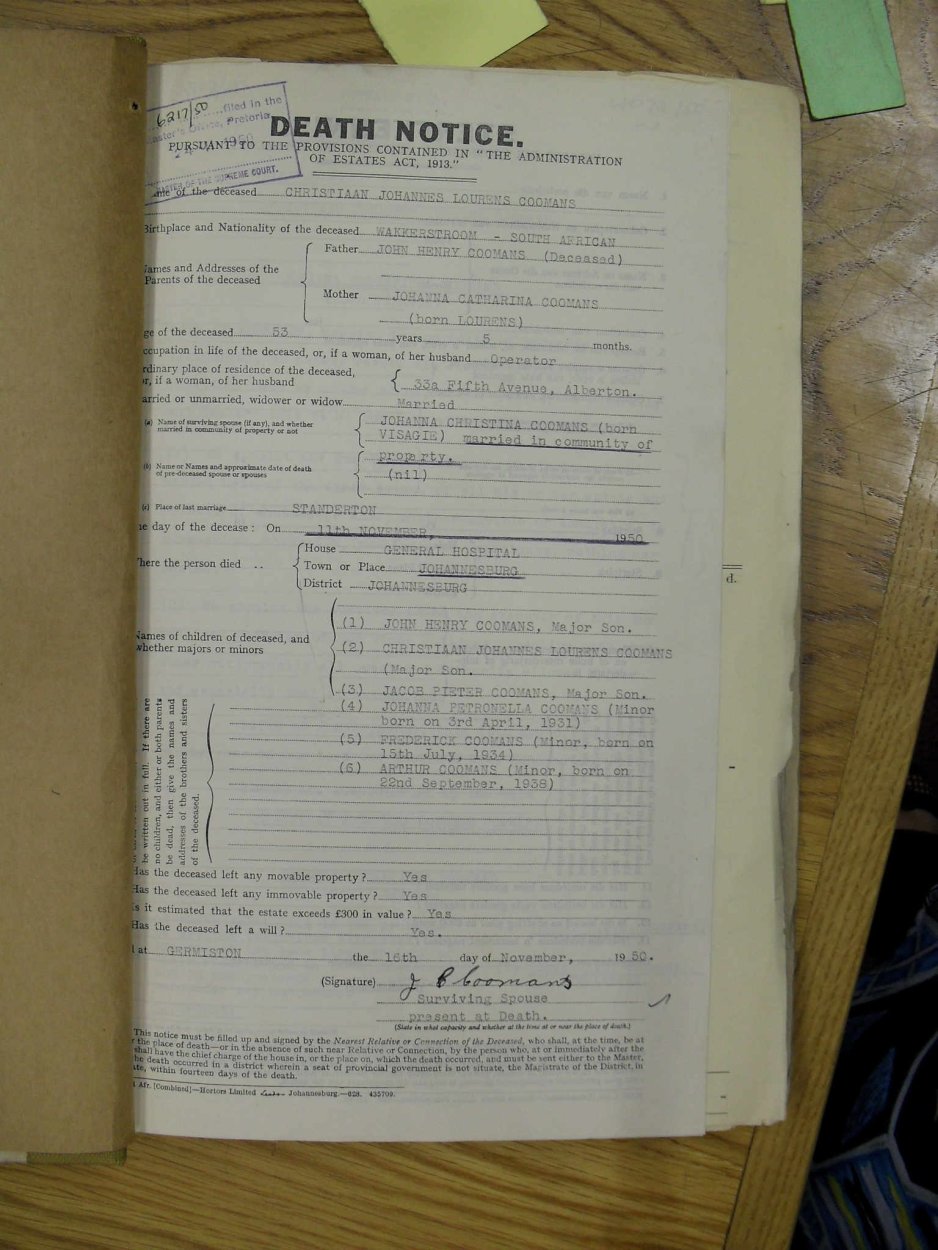 6217/50 filed in the
Master's Office, Pretoria
1950
MASTER OF THE SUPREME COURT.
DEATH NOTICE.
PURSUANT TO THE PROVISIONS CONTAINED IN "THE ADMINISTRATION
OF ESTATES ACT, 1913."
me of the deceased CHRISTIAAN JOHANNES LOURENS COOMANS
Birthplace and Nationality of the deceased WAKKERSTROOM - SOUTH AFRICAN
Names and Addresses of the
Parents of the deceased
Father JOHN HENRY COOMANS (Deceased)
Mother JOHANNA CATHARINA COOMANS
(born LOURENS)
ge of the deceased 53 years 5 months.
ccupation in life of the deceased, or, if a woman, of her husband Operator
rdinary place of residence of the deceased,
or, if a woman, of her husband
33a Fifth Avenue, Alberton.
arried or unmarried, widower or widow Married
(a) Name of surviving spouse (if any), and whether
married in community of property or not
JOHANNA CHRISTINA COOMANS (born
VISAGIE) married in community of
property.
(b) Name or Names and approximate date of death
of pre-deceased spouse or spouses
(nil)
(c) Place of last marriage STANDERTON
he day of the decease: On 11th NOVEMBER, 1950
here the person died ..
House GENERAL HOSPITAL
Town or Place JOHANNESBURG
District JOHANNESBURG
Names of children of deceased, and
whether majors or minors
(1) JOHN HENRY COOMANS, Major Son.
(2) CHRISTIAAN JOHANNES LOURENS COOMANS
(Major Son.
(3) JACOB PIETER COOMANS, Major Son.
(4) JOHANNA PETRONELLA COOMANS (Minor
born on 3rd April, 1931)
(5) FREDERICK COOMANS (Minor, born on
15th July, 1934)
(6) ARTHUR COOMANS (Minor, born on
22nd September, 1938)
be written out in full. If there are
no children, and either or both parents
be dead, then give the names and
addresses of the brothers and sisters
of the deceased.
Has the deceased left any movable property? Yes
Has the deceased left any immovable property? Yes
Is it estimated that the estate exceeds £300 in value? Yes
Has the deceased left a will? Yes.
at GERMISTON the 16th day of November, 1950.
(Signature) J C Coomans
Surviving Spouse
present at Death.
(State in what capacity and whether at the time at or near the place of death.)
This notice must be filled up and signed by the Nearest Relative or Connection of the Deceased, who shall, at the time, be at
the place of death—or in the absence of such near Relative or Connection, by the person who, at or immediately after the
shall have the chief charge of the house in, or the place on, which the death occurred, and must be sent either to the Master,
he death occurred in a district wherein a seat of provincial government is not situate, the Magistrate of the District, in
te, within fourteen days of the death.
Afr. [Combined]—Hortors Limited Johannesburg.—028. 435709.
d.